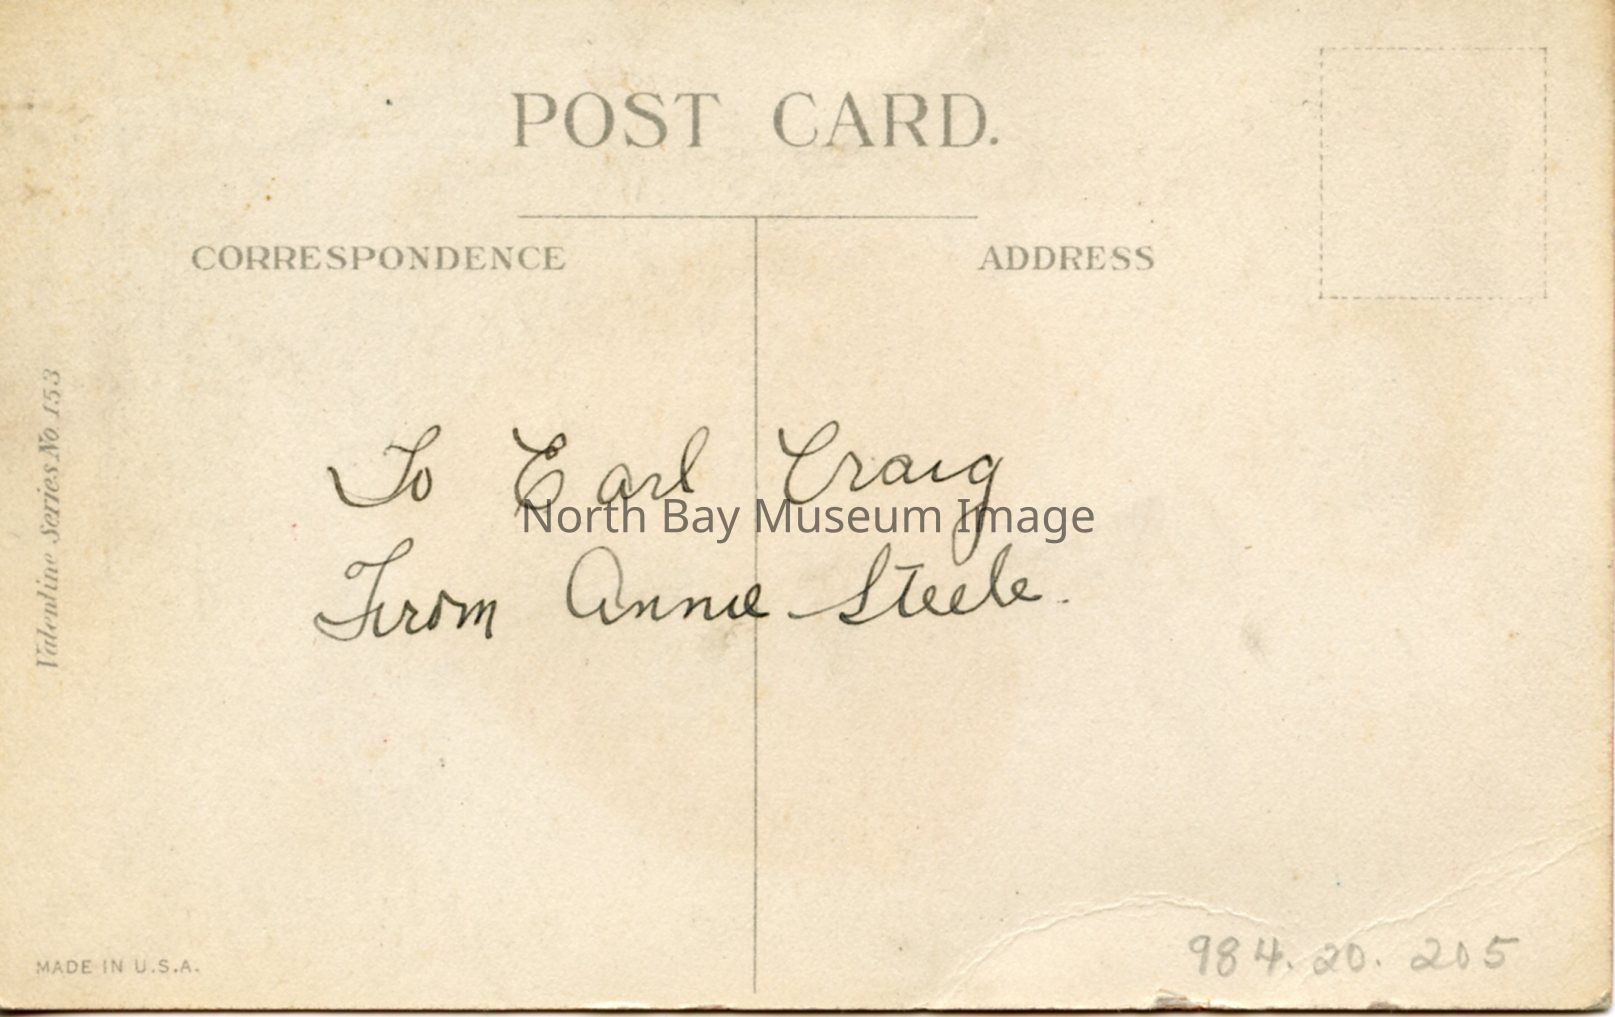 POST CARD.
CORRESPONDENCE
ADDRESS
Valentine Series No. 153
To Earl Craig
North Bay Museum Image
From Annie Steele.
MADE IN U.S.A.
984.20.205